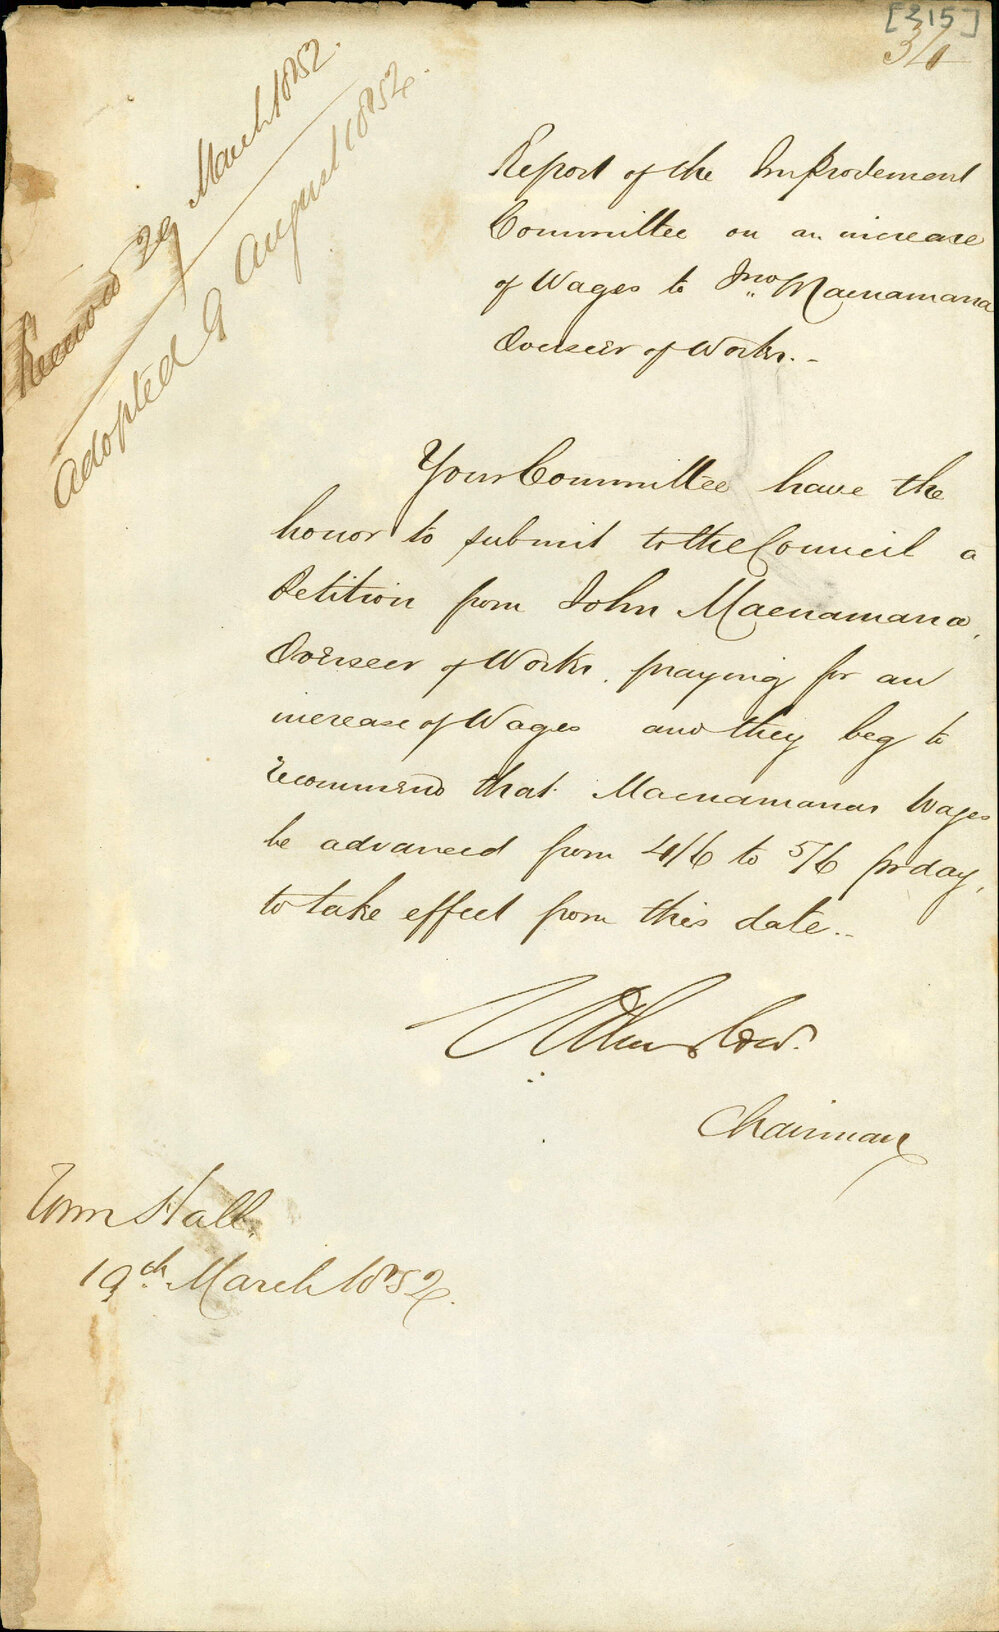 [315]
Received 29 March 1852.
Adopted 9 August 1852.
Report of the Improvement
Committee on an increase
of Wages to Jno Macnamara
Overseer of Works.-
Your Committee have the
honor to submit to the Council a
Petition from John Macnamara,
Overseer of Works. praying for an
increase of Wages and they beg to
recommend that Macnamaras Wages
be advanced from 4/6 to 5/6 pr day,
to take effect from this date..
Chairman
Town Hall.
19th March 1852.